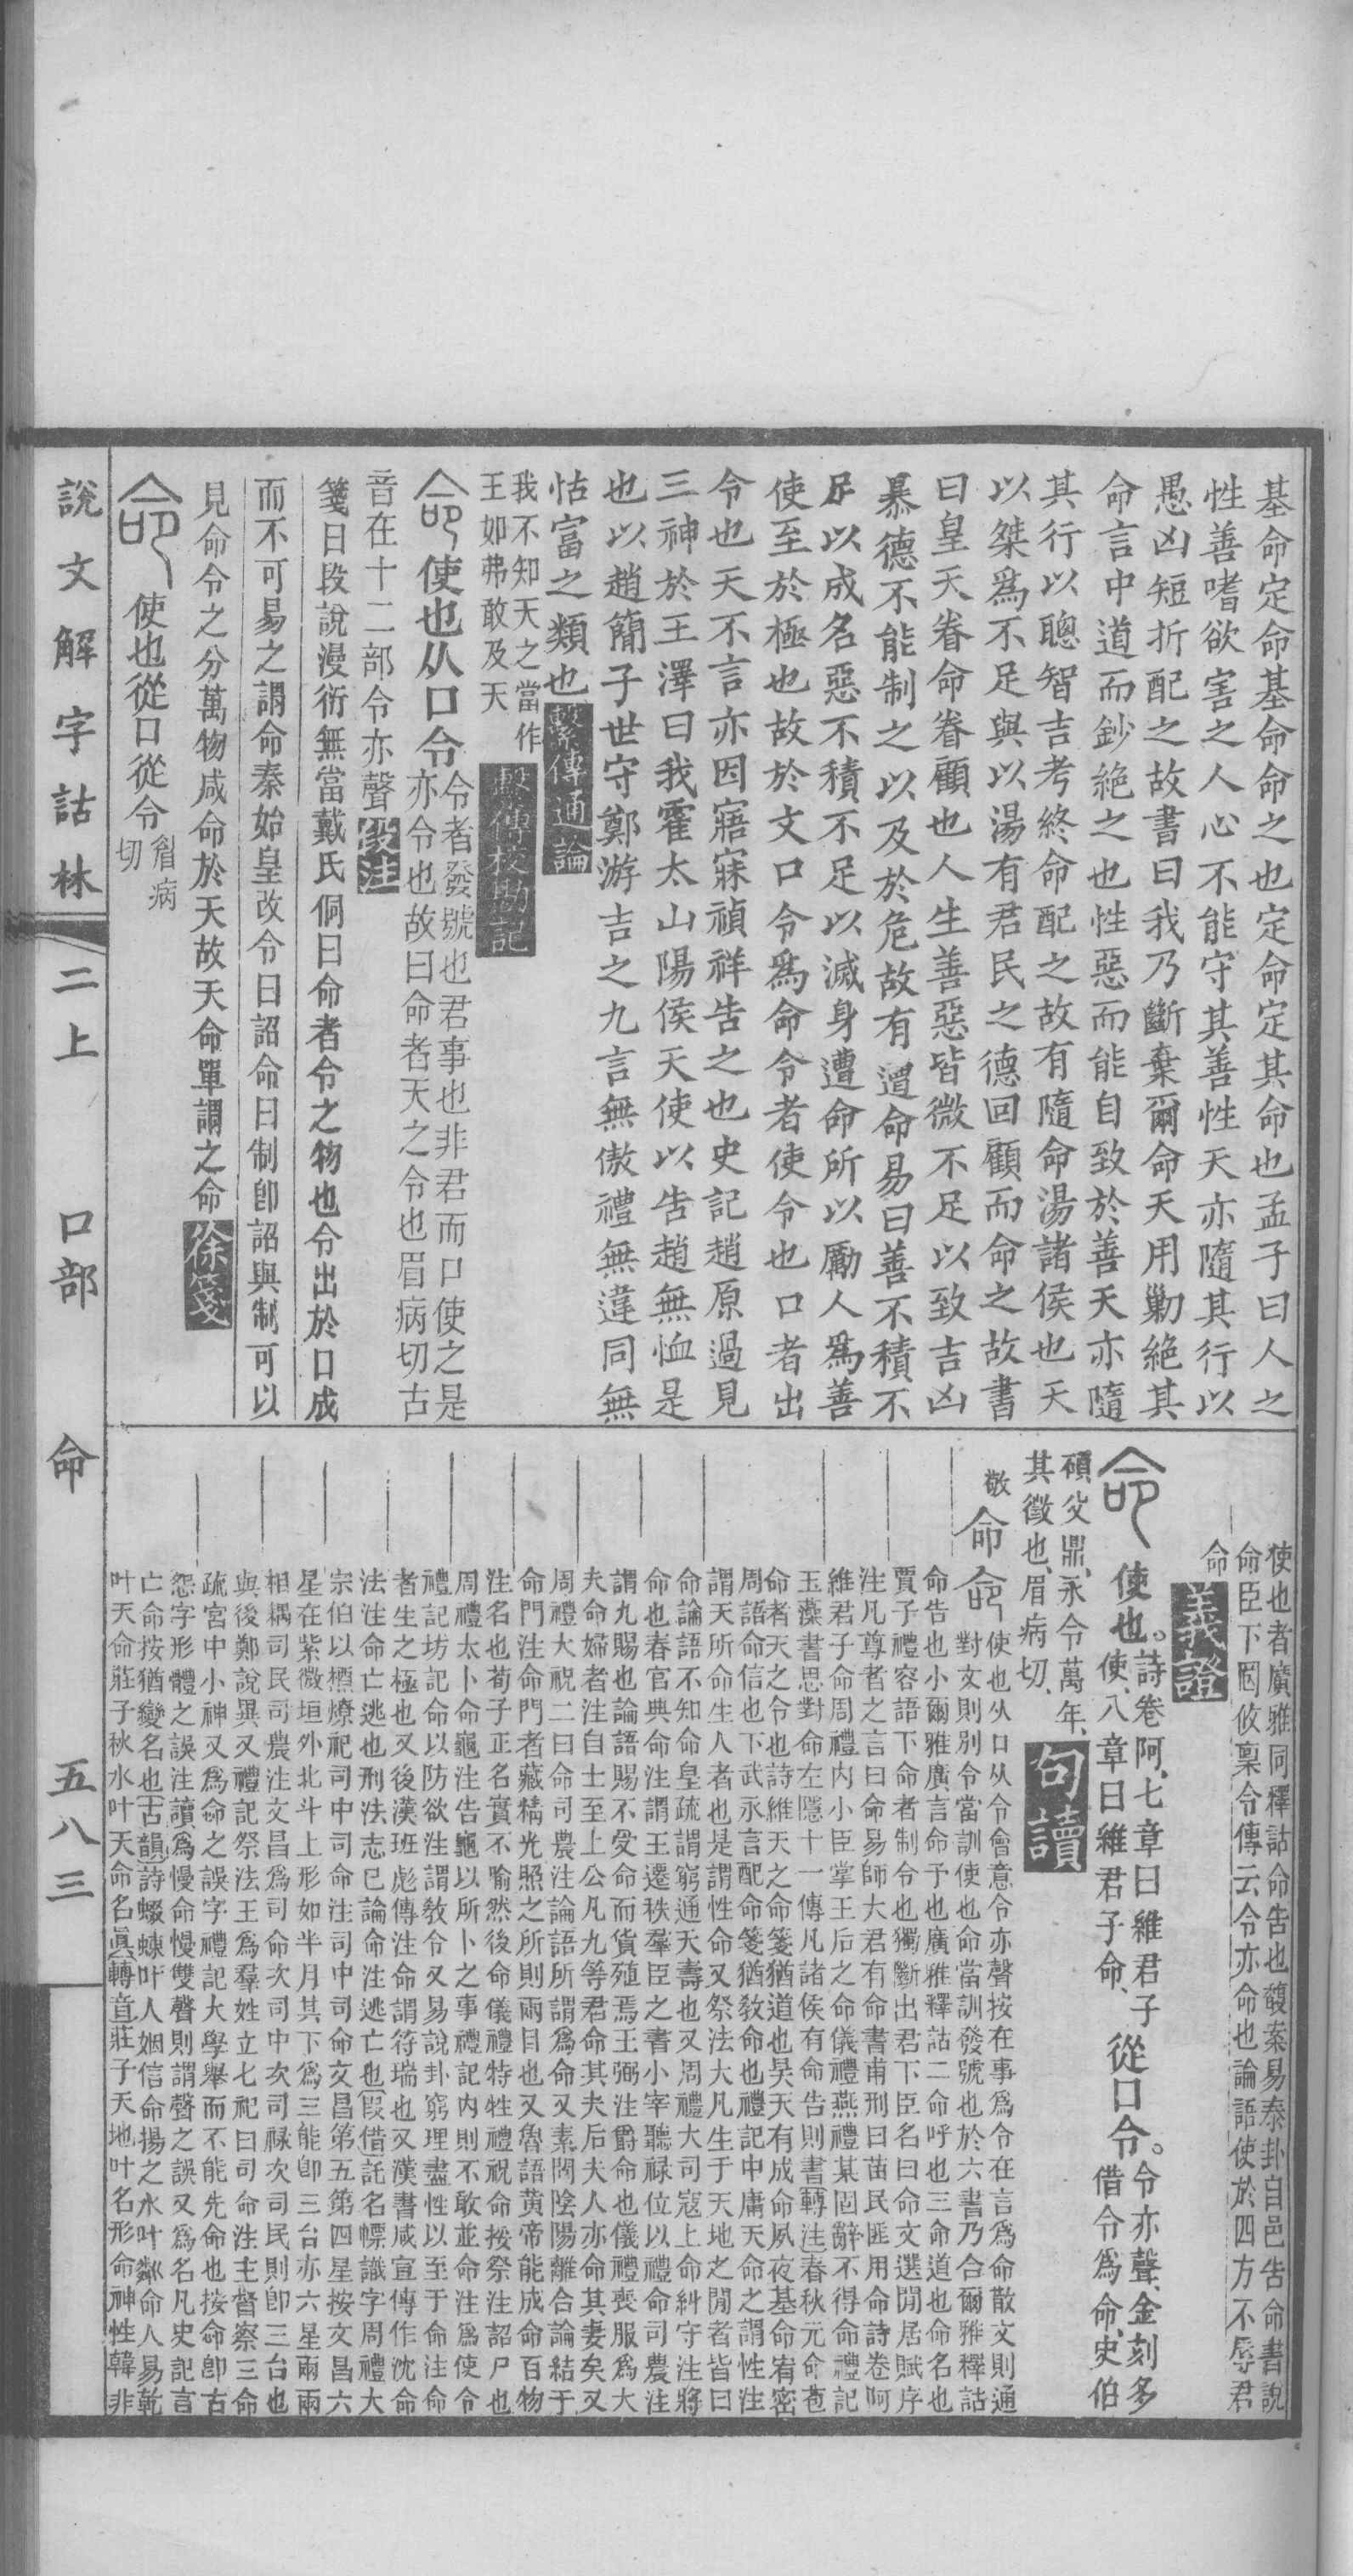 基命定命基命命之也定命定其命也孟子曰人之
性善嗜欲害之人心不能守其善性天亦隨其行以
愚凶短折配之故書曰我乃斷棄爾命天用勦絕其
命言中道而鈔絕之也性惡而能自致於善天亦隨
其行以聰智吉考終命配之故有隨命湯諸侯也天
以桀爲不足與以湯有君民之德回顧而命之故書
曰皇天眷命眷顧也人生善惡皆微不足以致吉凶
慕德不能制之以及於危故有遭命易曰善不積不
足以成名惡不積不足以滅身遭命所以勵人爲善
使至於極也故於文口令爲命令者使令也口者出
令也天不言亦因寤寐禎祥告之也史記趙原過見
三神於王澤曰我霍太山陽侯天使以告趙無恤是
也以趙簡子世守鄭游吉之九言無傲禮無違同無
怙富之類也繫傳通論
我不知天之當作
王如弗敢及天
繫傳校勘記
命使也从口令
令者發號也君事也非君而口使之是
亦令也故曰命者天之令也眉病切古
音在十二部令亦聲段注
箋曰段說漫衍無當戴氏侗曰命者令之物也令出於口成
而不可易之謂命秦始皇改令曰詔命曰制卽詔與制可以
見命令之分萬物咸命於天故天命單謂之命徐箋
命使也從口從令
眉病
切
使也者廣雅同釋詁命告也馥案易泰卦自邑告命書說
命臣下罔攸稟令傳云令亦命也論語使於四方不辱君
命義證
命使也。詩卷阿、七章曰維君子
使、八章曰維君子命、從口令。令亦聲、金刻多
借令爲命、史伯
碩父鼎、永令萬年、
其徵也、眉病切、
句讀
敬命命使也从口从令會意令亦聲按在事爲令在言爲命散文則通
對文則別令當訓使也命當訓發號也於六書乃合爾雅釋詁
命告也小爾雅廣言命予也廣雅釋詁二命呼也三命道也命名也
賈子禮容語下命者制令也獨斷出君下臣名曰命文選閒居賦序
注凡尊者之言曰命易師大君有命書甫刑曰苗民匪用命詩卷阿
維君子命周禮內小臣掌王后之命儀禮燕禮某固辭不得命禮記
玉藻書思對命左隱十一傳凡諸侯有命告則書轉注春秋元命苞
命者天之令也詩維天之命箋猶道也昊天有成命夙夜基命宥密
周語命信也下武永言配命箋猶敎命也禮記中庸天命之謂性注
謂天所命生人者也是謂性命又祭法大凡生于天地之閒者皆曰
命論語不知命皇疏謂窮通夭壽也又周禮大司寇上命糾守注將
命也春官典命注謂王遷秩羣臣之書小宰聽祿位以禮命司農注
謂九賜也論語賜不受命而貨殖焉王弼注爵命也儀禮喪服爲大
夫命婦者注自士至上公凡九等君命其夫后夫人亦命其妻矣又
周禮大祝二曰命司農注論語所謂爲命又素問陰陽離合論結于
命門注命門者藏精光照之所則兩目也又魯語黃帝能成命百物
注名也荀子正名實不喻然後命儀禮特牲禮祝命挼祭注詔尸也
周禮太卜命龜注告龜以所卜之事禮記內則不敢並命注爲使令
禮記坊記命以防欲注謂敎令又易說卦窮理盡性以至于命注命
者生之極也又後漢班彪傳注命謂符瑞也又漢書咸宣傳作沈命
法注命亡逃也刑法志已論命注逃亡也假借託名幖識字周禮大
宗伯以槱燎祀司中司命注司中司命文昌第五第四星按文昌六
星在紫微垣外北斗上形如半月其下爲三能卽三台亦六星兩兩
相耦司民司農注文昌爲司命次司中次司祿次司民則卽三台也
與後鄭說異又禮記祭法王爲羣姓立七祀曰司命注主督察三命
疏宮中小神又爲侖之誤字禮記大學舉而不能先命也按命卽古
怨字形體之誤注讀爲慢命慢雙聲則謂聲之誤又爲名凡史記言
亡命按猶變名也古韻詩蝃蝀叶人姻信命揚之水叶粼命人易乾
叶天命莊子秋水叶天命名眞轉音莊子天地叶名形命神性韓非
說文解字詁林 二上 口部 命 五八三